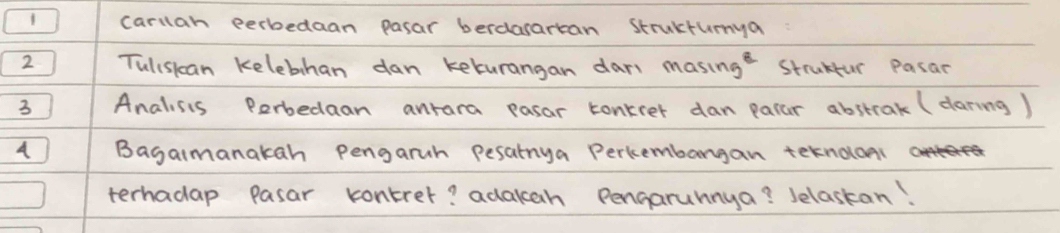 1 Carilah perbedaan pasar berdasarkan Strukturnya
2 Tuliskan Kelebihan dan kekurangan dari masing² Struktur Pasar
3 Analisis Perbedaan antara pasar konkret dan pasar abstrak (daring)
4 Bagaimanakah Pengaruh Pesatnya Perkembangan teknologi
terhadap Pasar konkret? adakah Pengaruhnya? Jelaskan!